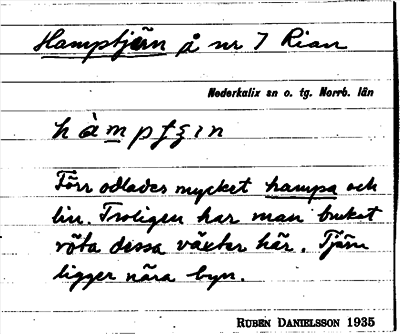 Hamptjärn på nr 7 Rian
Nederkalix sn o. tg. Norrb. län
hàmpʈʂın
Förr odlades mycket hampa och
lin. Troligen har man brukat
röta dessa växter här. Tjärn
ligger nära byn.
RUBEN DANIELSSON 1935